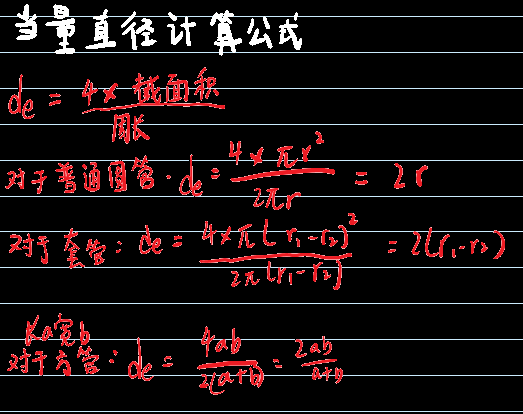 当量直径计算公式
de = 4× 截面积 / 周长
对于普通圆管. de = 4×πr² / 2πr = 2r
对于套管: de = 4×π(r₁-r₂)² / 2π(r₁-r₂) = 2(r₁-r₂)
长a宽b
对于方管: de = 4ab / 2(a+b) = 2ab / a+b